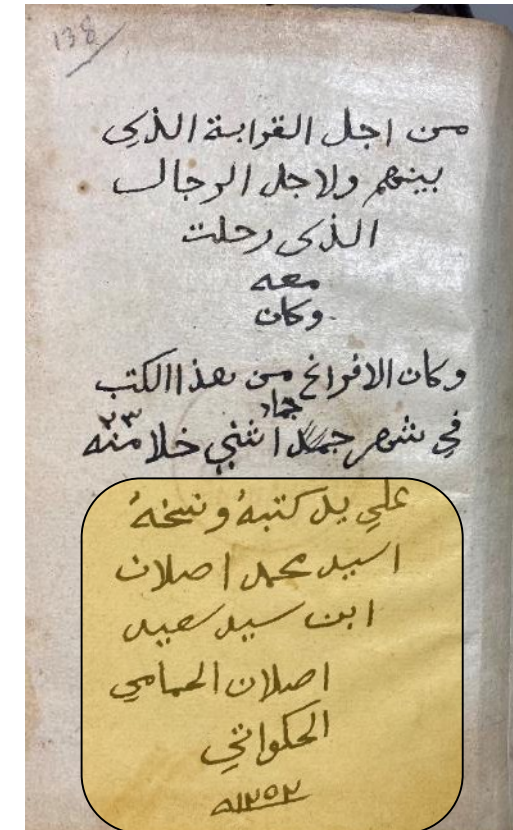 138
من اجل القرابة الذي
بينهم ولاجل الرجال
الذي رحلت
معه
وكان
وكان الافراغ من هذا الكتب
في شهر جماد اشني خلا منه ٢٣
على يد كتبهُ ونسخهُ
اسيد محمد اصلان
ابن سيد سعيد
اصلان الحمامي
الحكواتي
١٢٥٢